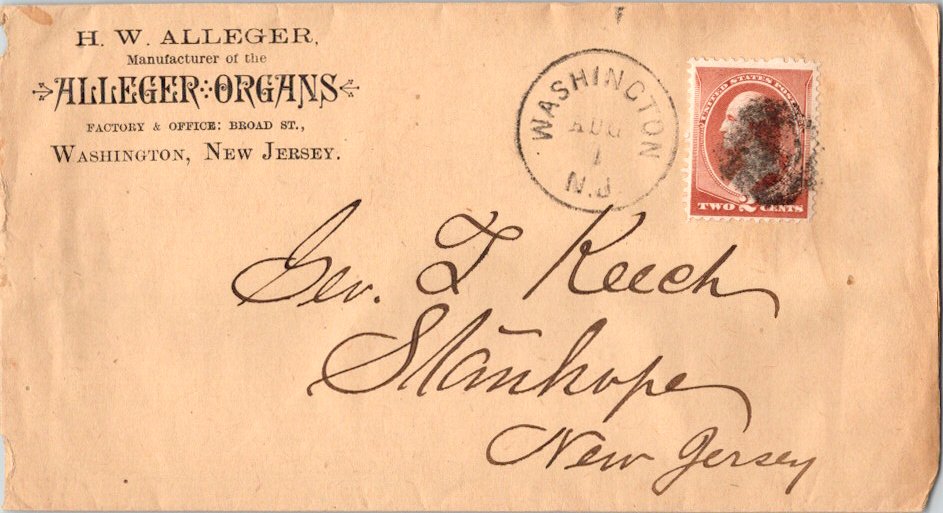 H. W. ALLEGER,
Manufacturer of the
ALLEGER ORGANS
FACTORY & OFFICE: BROAD ST.,
WASHINGTON, NEW JERSEY.
WASHINGTON
AUG
7
N.J.
UNITED STATES POSTAGE
TWO 2 CENTS
Geo. T Keech
Stanhope
New Jersey